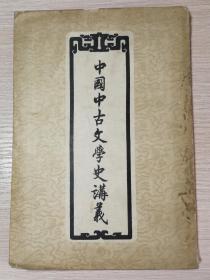 中國中古文學史講義